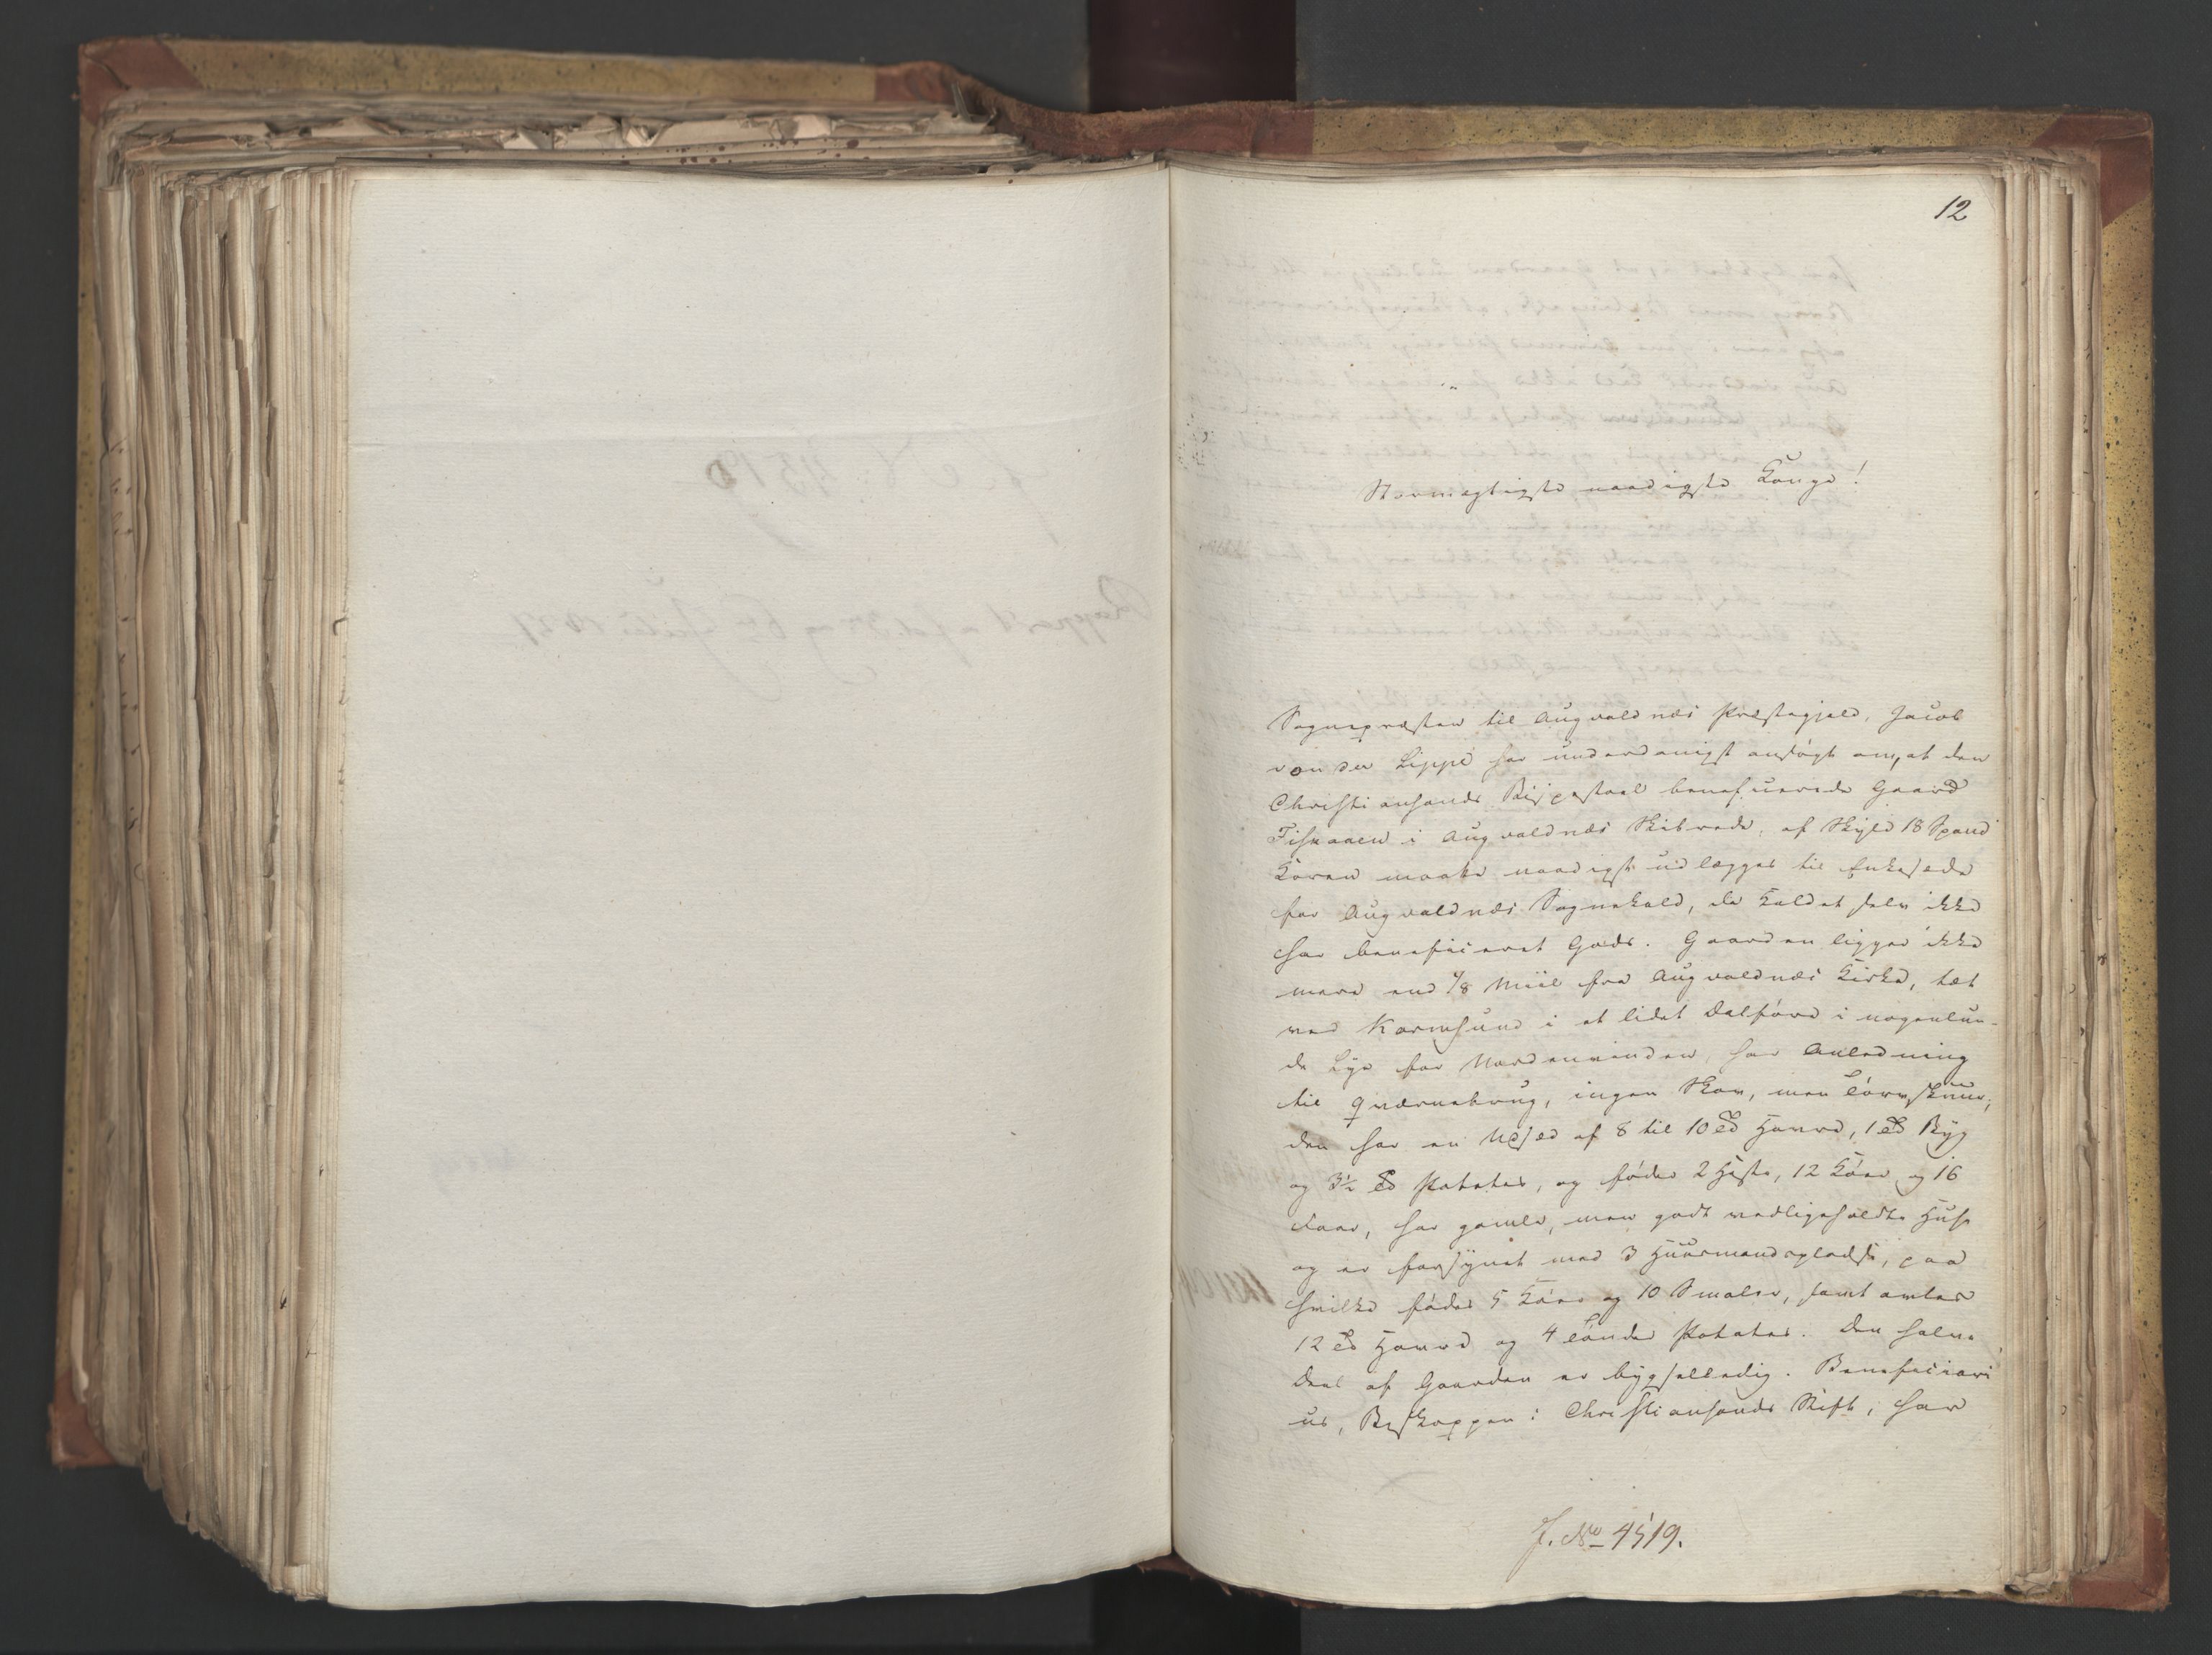 12
Stormægtigste naadigste Konge!
Sognepræsten til Augvaldnæs Præstegjeld, Jacob
von der Lippe har underdanigst ansøgt om, at den
Christiansands Bispestoel beneficerede Gaard
Fiskaaen i Augvaldnæs Skibrede, af Skyld 18 Spand
Koren maatte naadigst udlægges til Enkesæde
for Augvaldnæs Sognekald, da Kaldet selv ikke
har beneficeret Gods. Gaarden ligger ikke
mere end 1/8 Miil fra Augvaldnæs Kirke, tæt
ved Karmsund i et lidet Dalføre i nogenlun-
de Lye for Nordenvinden, har Anledning
til Qværnebrug, ingen Skov, men Tørvskuur;
den har en Udsæd af 8 til 10 Td Havre, 1 Td Byg
og 3½ Td Potetes, og føder 2 Heste, 12 Køer og 16
Faar, har gamle, men godt vedligeholdte Huse
og er forsynet med 3 Huusmandspladse, paa
hvilke fødes 5 Køer og 10 Smaler, samt avles
12 Td Havre og 4 Tønder Potetes. Den halve
Deel af Gaarden er bygselledig. Beneficiari
us, Biskoppen i Christiansands Stift, har
J. No 4519.